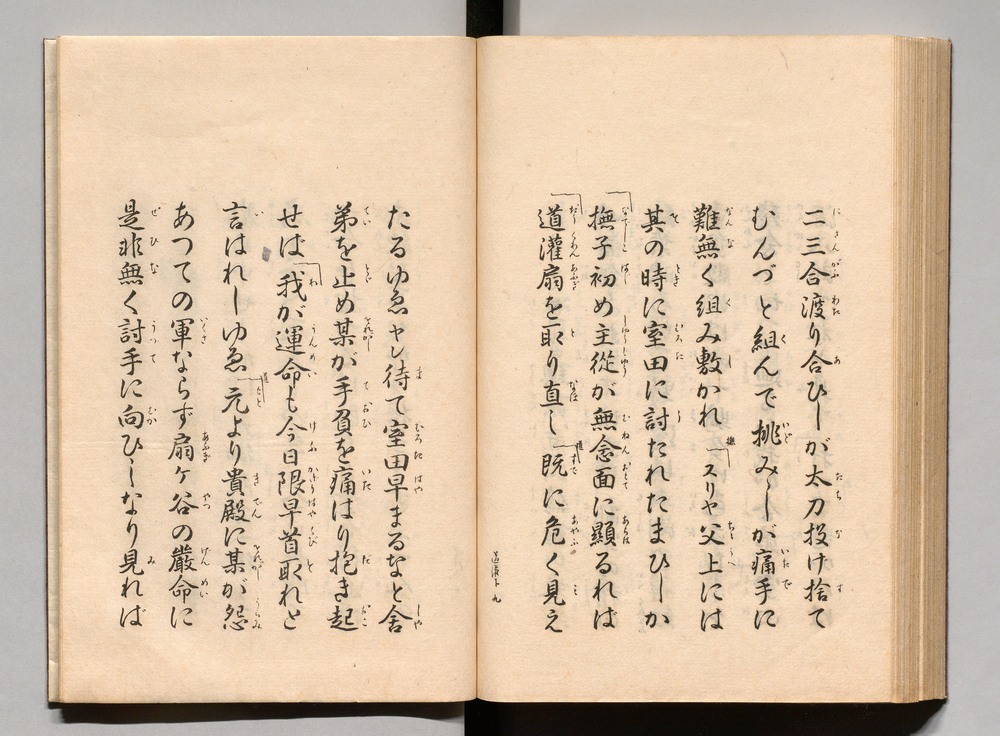 二三合渡り合ひしが太刀投け捨て
むんづと組んで挑みしが痛手に
難無く組み敷かれ スリヤ父上には
其の時に室田に討たれたまひしか
撫子初め主從が無念面に顯るれば
道灌扇を取り直し 既に危く見え
道灌下 九
たるゆゑヤレ待て室田早まるなと舍
弟を止め某が手負を痛はり抱き起
せば 我が運命も今日限早首取れと
言はれしゆゑ 元より貴殿に某が怨
あつての軍ならず扇ヶ谷の嚴命に
是非無く討手に向ひしなり見れば